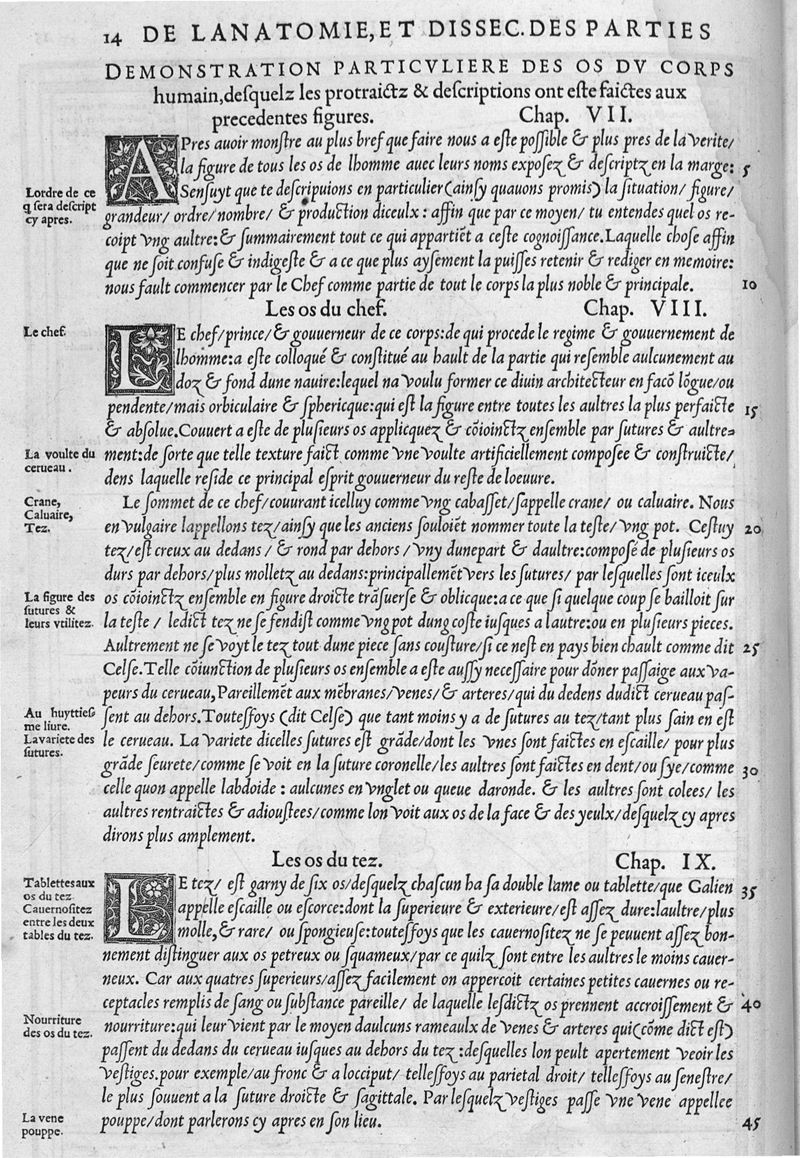 14 DE LANATOMIE, ET DISSEC. DES PARTIES
DEMONSTRATION PARTICVLIERE DES OS DV CORPS
humain, desquelz les protraictz & descriptions ont este faictes aux
precedentes figures. Chap. VII.
APres auoir monstre au plus bref que faire nous a este possible & plus pres de la verite/
la figure de tous les os de lhomme auec leurs noms exposez & descriptz en la marge: 5
Lordre de ce
q sera descript
cy apres.
Sensuyt que te descripuions en particulier (ainsy quauons promis) la situation/ figure/
grandeur/ ordre/ nombre/ & production diceulx: affin que par ce moyen/ tu entendes quel os re-
coipt vng aultre: & summairement tout ce qui appartiēt a ceste cognoissance. Laquelle chose affin
que ne soit confuse & indigeste & a ce que plus aysement la puisses retenir & rediger en memoire:
nous fault commencer par le Chef comme partie de tout le corps la plus noble & principale. 10
Les os du chef. Chap. VIII.
Le chef.
LE chef/ prince/ & gouuerneur de ce corps: de qui procede le regime & gouuernement de
lhomme: a este colloqué & constitué au hault de la partie qui resemble aulcunement au
doz & fond dune nauire: lequel na voulu former ce diuin architecteur en facō lōgue/ ou
pendente/ mais orbiculaire & sphericque: qui est la figure entre toutes les aultres la plus perfaicte 15
& absolue. Couuert a este de plusieurs os applicquez & cōioinctz ensemble par sutures & aultre=
La voulte du
cerueau.
ment: de sorte que telle texture faict comme vne voulte artificiellement composee & construicte/
dens laquelle reside ce principal esprit gouuerneur du reste de loeuure.
Crane,
Caluaire,
Tez.
Le sommet de ce chef/ couurant icelluy comme vng cabasset/ sappelle crane/ ou caluaire. Nous
en vulgaire lappellons tez/ ainsy que les anciens souloiēt nommer toute la teste/ vng pot. Cestuy 20
tez/ est creux au dedans/ & rond par dehors/ vny dunepart & daultre: composé de plusieurs os
durs par dehors/ plus molletz au dedans: principallemēt vers les sutures/ par lesquelles sont iceulx
La figure des
sutures &
leurs vtilitez.
os cōioinctz ensemble en figure droicte trāsuerse & oblicque: a ce que si quelque coup se bailloit sur
la teste/ ledict tez ne se fendist comme vng pot dung coste iusques a lautre: ou en plusieurs pieces.
Aultrement ne se voyt le tez tout dune piece sans cousture/ si ce nest en pays bien chault comme dit 25
Celse. Telle cōiunction de plusieurs os ensemble a este aussy necessaire pour dōner passaige aux va-
peurs du cerueau, Pareillemēt aux mēbranes/ venes/ & arteres/ qui du dedens dudict cerueau pas-
Au huytties
me liure.
La variete des
sutures.
sent au dehors. Toutesfoys (dit Celse) que tant moins y a de sutures au tez/ tant plus sain en est
le cerueau. La variete dicelles sutures est grāde/ dont les vnes sont faictes en escaille/ pour plus
grāde seurete/ comme se voit en la suture coronelle/ les aultres sont faictes en dent/ ou sye/ comme 30
celle quon appelle labdoide: aulcunes en vnglet ou queue daronde. & les aultres sont colees/ les
aultres rentraictes & adioustees/ comme lon voit aux os de la face & des yeulx/ desquelz cy apres
dirons plus amplement.
Les os du tez. Chap. IX.
Tablettes aux
os du tez.
Cauernositez
entre les deux
tables du tez.
LE tez/ est garny de six os/ desquelz chascun ha sa double lame ou tablette/ que Galien 35
appelle escaille ou escorce: dont la superieure & exterieure/ est assez dure: laultre/ plus
molle, & rare/ ou spongieuse: toutesfoys que les cauernositez ne se peuuent assez bon-
nement distinguer aux os petreux ou squameux/ par ce quilz sont entre les aultres le moins cauer-
neux. Car aux quatres superieurs/ assez facilement on appercoit certaines petites cauernes ou re-
ceptacles remplis de sang ou substance pareille/ de laquelle lesdictz os prennent accroissement & 40
Nourriture
des os du tez.
nourriture: qui leur vient par le moyen daulcuns rameaulx de venes & arteres qui (cōme dict est)
passent du dedans du cerueau iusques au dehors du tez: desquelles lon peult apertement veoir les
vestiges. pour exemple/ au fronc & a locciput/ tellesfoys au parietal droit/ tellesfoys au senestre/
le plus souuent a la suture droicte & sagittale. Par lesquelz vestiges passe vne vene appellee
La vene
pouppe.
pouppe/ dont parlerons cy apres en son lieu. 45